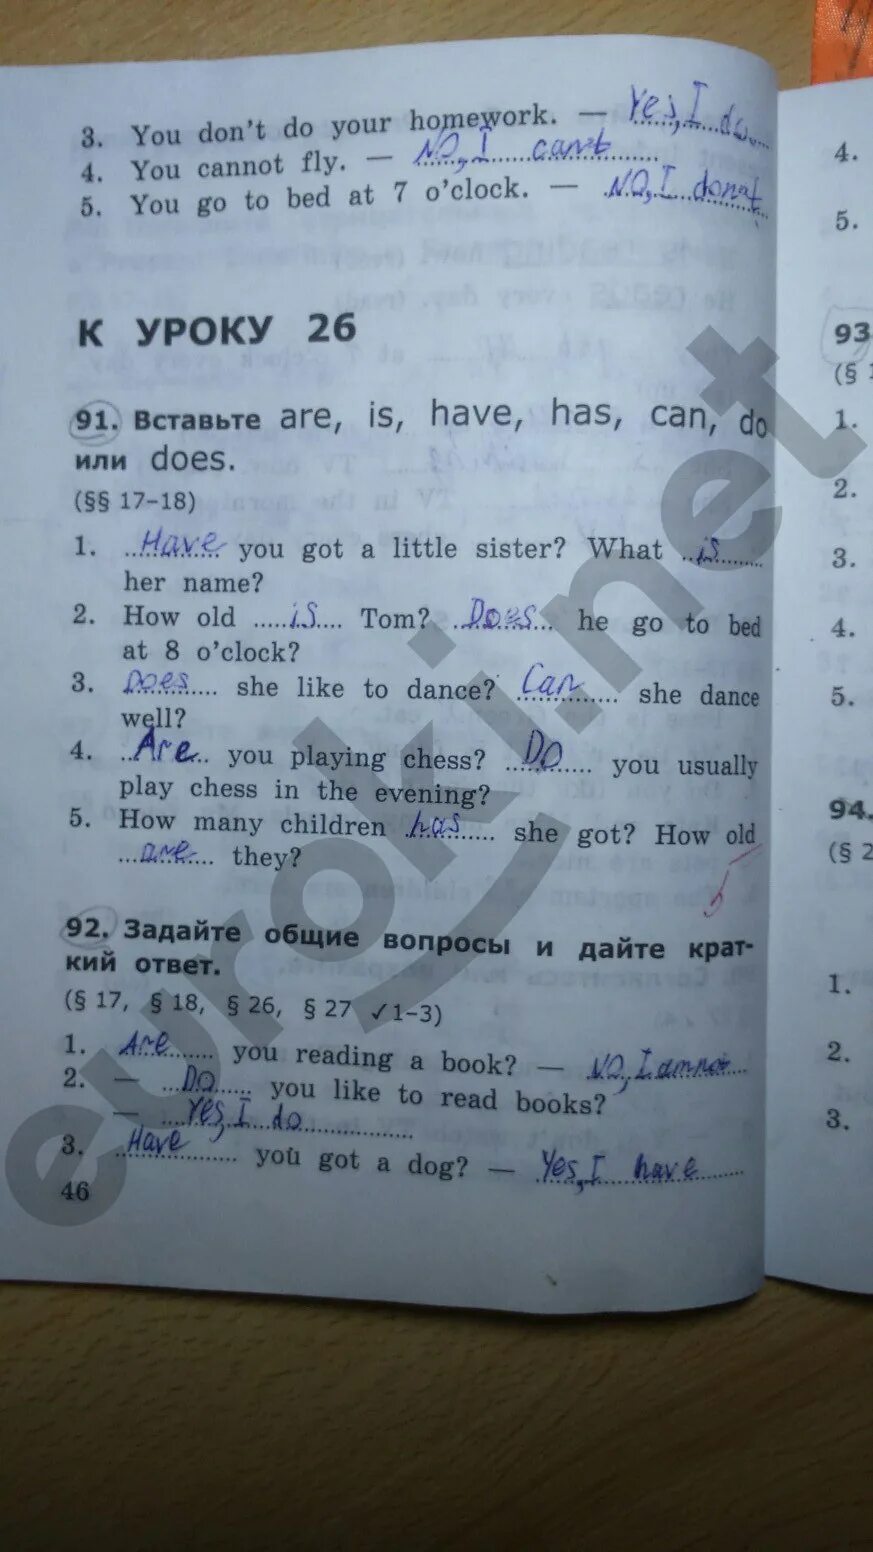 3. You don't do your homework. — Yes, I do
4. You cannot fly. — NO, I can't
5. You go to bed at 7 o'clock. — NO, I donat
К УРОКУ 26
91. Вставьте are, is, have, has, can, do
или does.
(§§ 17–18)
1. Have you got a little sister? What is
her name?
2. How old is Tom? Does he go to bed
at 8 o'clock?
3. Does she like to dance? Can she dance
well?
4. Are you playing chess? Do you usually
play chess in the evening?
5. How many children has she got? How old
are they?
92. Задайте общие вопросы и дайте крат-
кий ответ.
(§ 17, § 18, § 26, § 27 ✓1–3)
1. Are you reading a book? — NO, I am not
2. — Do you like to read books?
— Yes, I do
3. Have you got a dog? — Yes, I have
46
4.
5.
93
1.
2.
3.
4.
5.
94.
(§ 2
1.
2.
3.
euroki.net